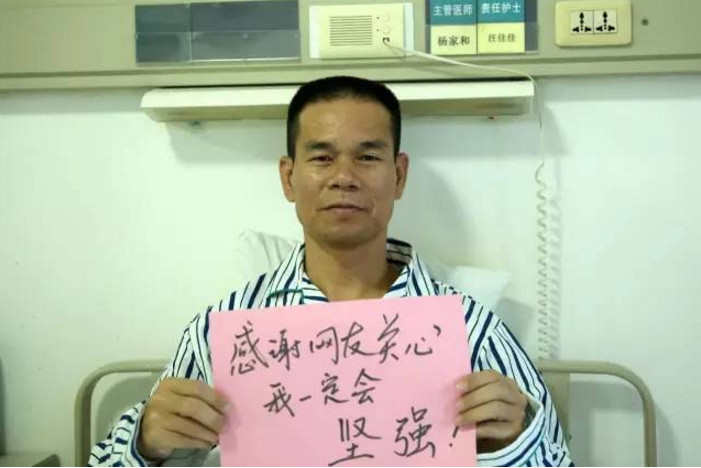 主管医师 责任护士
杨家和 任佳佳
感谢网友关心
我一定会
坚强!